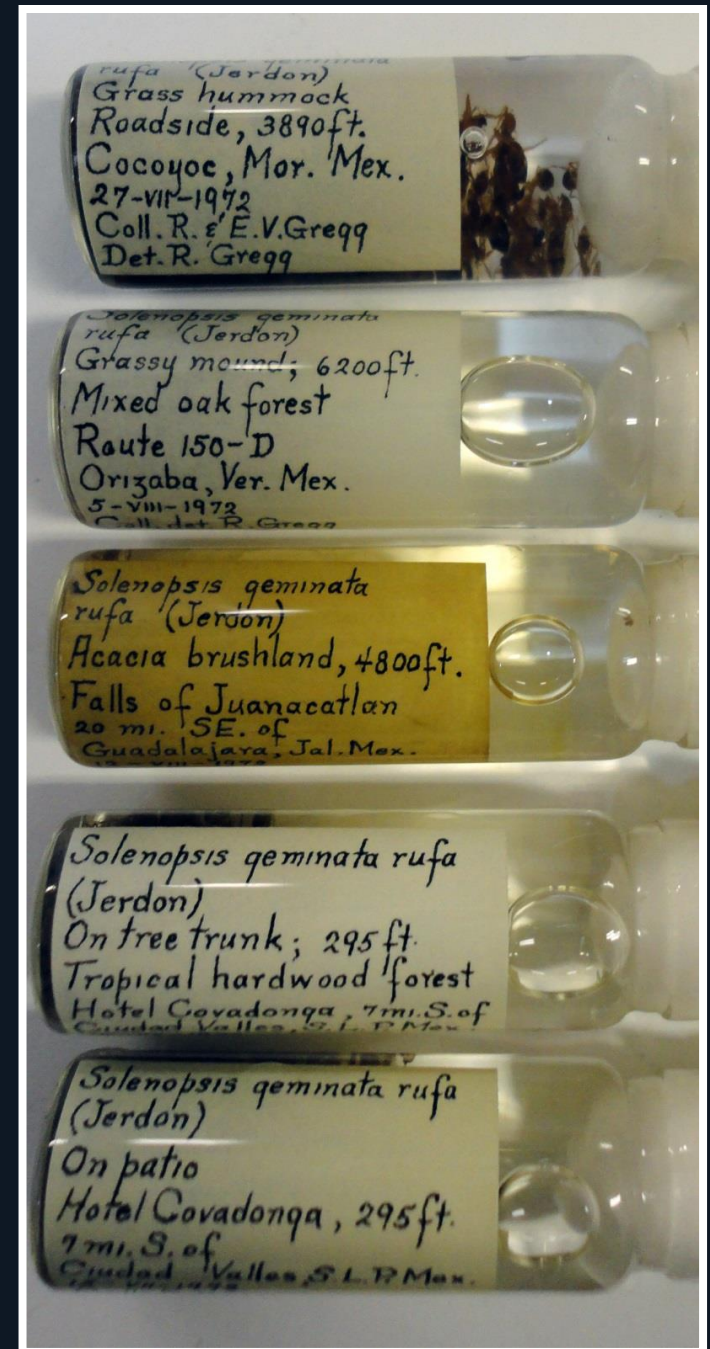 geminata
rufa (Jerdon)
Grass hummock
Roadside, 3890ft.
Cocoyoc, Mor. Mex.
27-VII-1972
Coll. R. & E.V. Gregg
Det. R. Gregg
Solenopsis geminata
rufa (Jerdon)
Grassy mound; 6200ft.
Mixed oak forest
Route 150-D
Orizaba, Ver. Mex.
5-VIII-1972
Coll. det. R. Gregg
Solenopsis geminata
rufa (Jerdon)
Acacia brushland, 4800ft.
Falls of Juanacatlan
20 mi. SE. of
Guadalajara, Jal. Mex.
Solenopsis geminata rufa
(Jerdon)
On tree trunk; 295 ft.
Tropical hardwood forest
Hotel Covadonga, 7mi. S. of
Ciudad Valles, S.L.P. Mex.
Solenopsis geminata rufa
(Jerdon)
On patio
Hotel Covadonga, 295ft.
7 mi. S. of
Ciudad Valles, S.L.P. Mex.